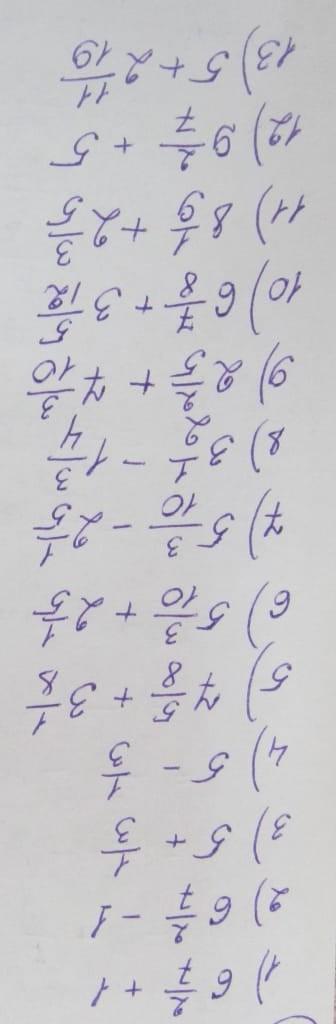 1) 6 2/7 + 1
2) 6 2/7 - 1
3) 5 + 1/3
4) 5 - 1/3
5) 7 5/8 + 3 1/8
6) 5 3/10 + 2 1/5
7) 5 3/10 - 2 1/5
8) 3 1/2 - 1 3/4
9) 2 2/5 + 7 3/10
10) 6 7/8 + 3 5/12
11) 8 1/9 + 2 3/5
12) 9 2/7 + 5
13) 5 + 2 11/19